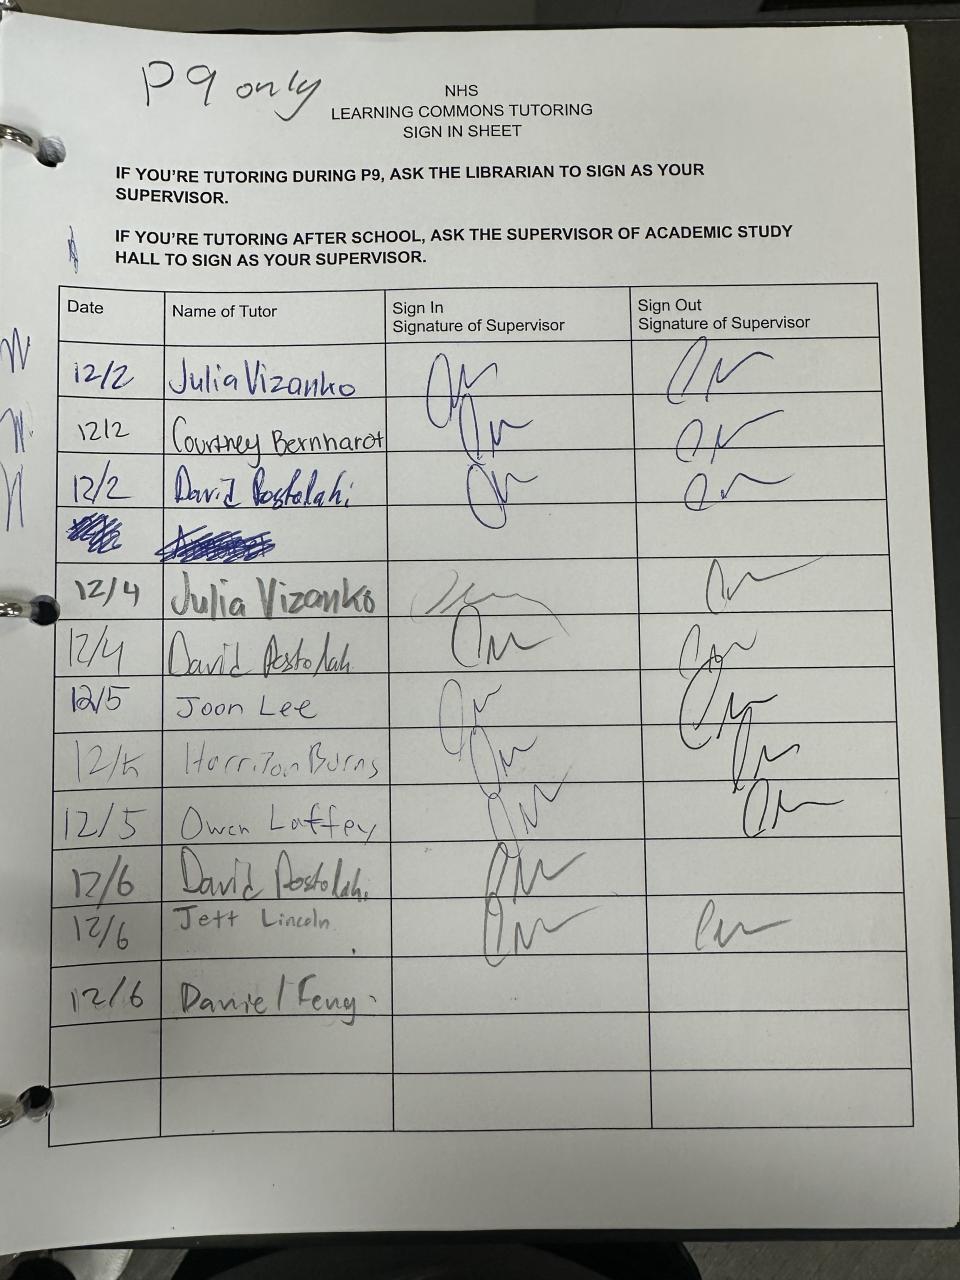 P9 only
NHS
LEARNING COMMONS TUTORING
SIGN IN SHEET
IF YOU'RE TUTORING DURING P9, ASK THE LIBRARIAN TO SIGN AS YOUR
SUPERVISOR.
IF YOU'RE TUTORING AFTER SCHOOL, ASK THE SUPERVISOR OF ACADEMIC STUDY
HALL TO SIGN AS YOUR SUPERVISOR.
Date Name of Tutor Sign In Sign Out
Signature of Supervisor Signature of Supervisor
12/2 Julia Vizanko
12/2 Courtney Bernhardt
12/2 David Postolahi
12/4 Julia Vizanko
12/4 David Postolahi
12/5 Joon Lee
12/5 Harrison Burns
12/5 Owen Laffey
12/6 David Postolahi
12/6 Jett Lincoln
12/6 Daniel Feng